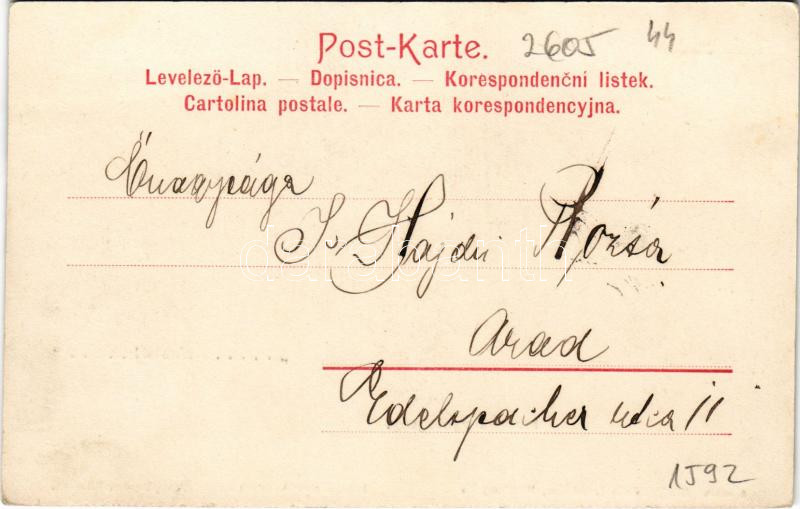 Post-Karte. 2605 44
Levelező-Lap. — Dopisnica. — Korespondenčni listek.
Cartolina postale. — Karta korespondencyjna.
Őnagysága
I. Hajdu Rózsa
darabanth
Arad
Edelspacher utca 11
1592